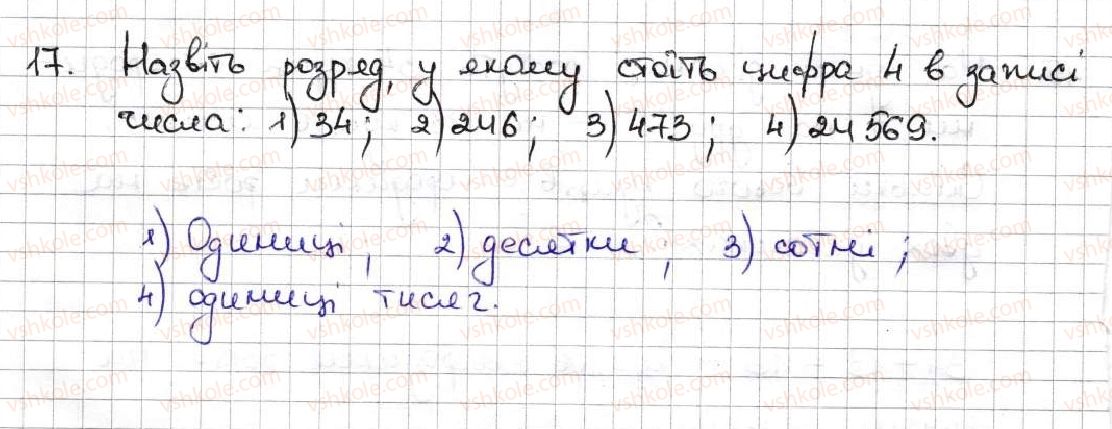 17. Назвіть розряд, у якому стоїть цифра 4 в записі
числа: 1) 34; 2) 246; 3) 473; 4) 24 569.
1) Одиниці, 2) десятки; 3) сотні;
4) одиниці тисяч.